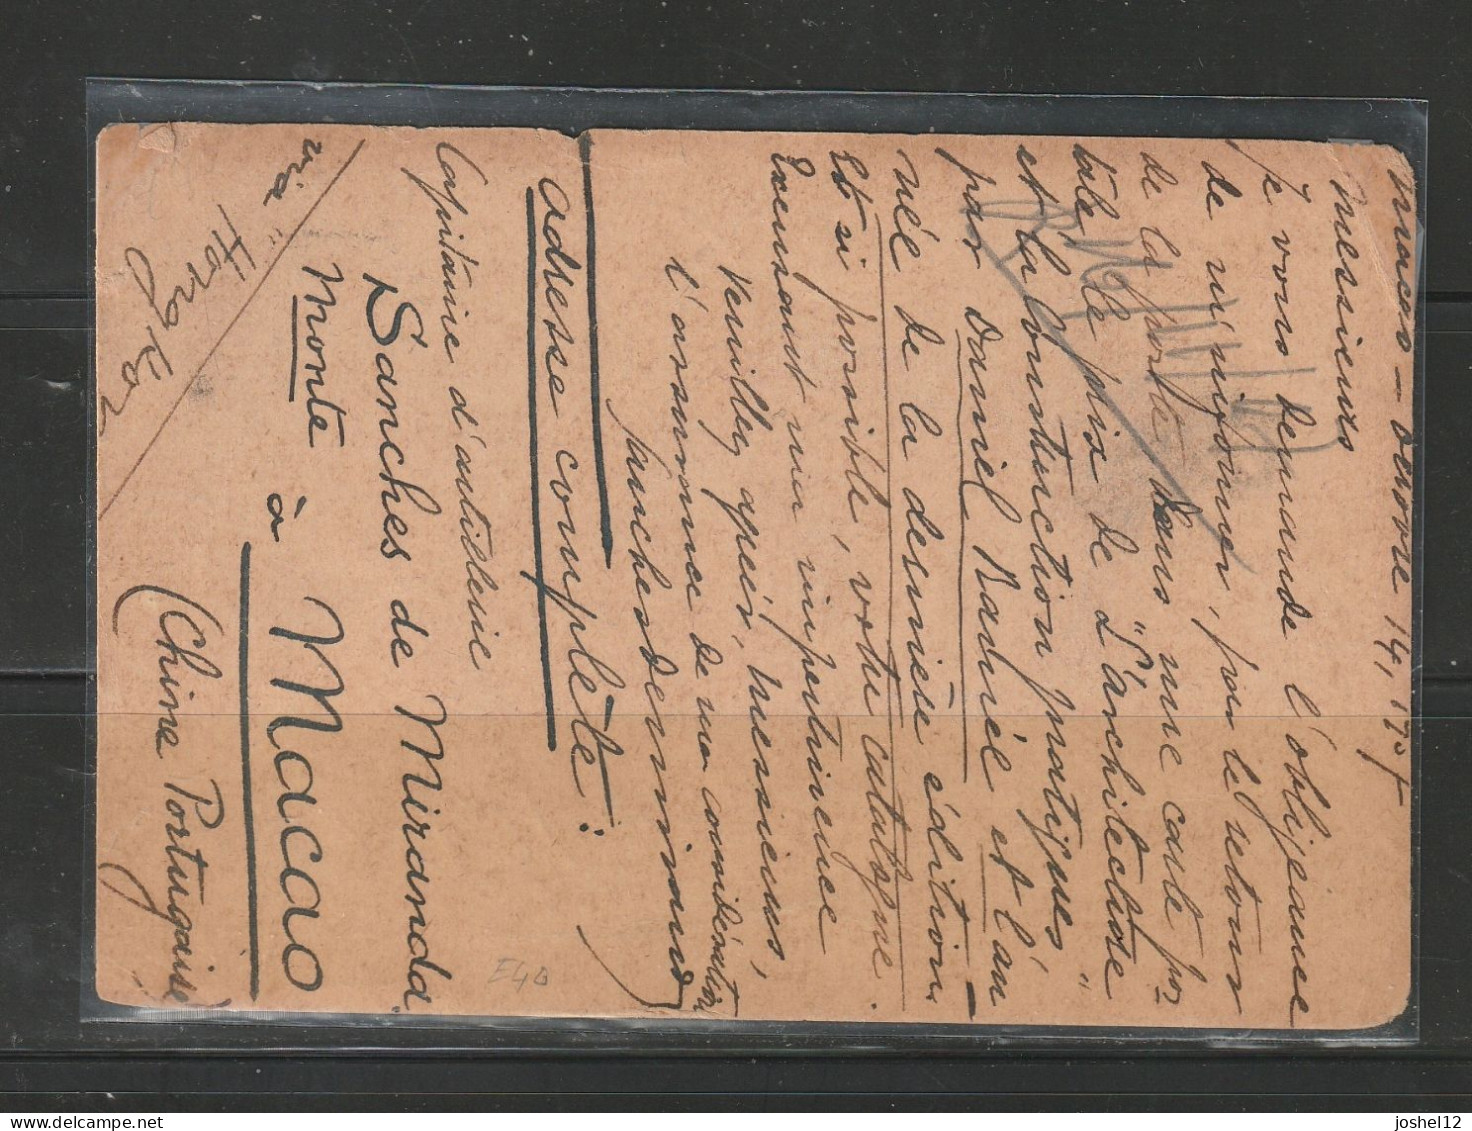 Macao – Octobre 14, 190
Messieurs
Je vous demande l'obligeance
de m'informer, par le retour
de la poste dans une carte pos-
tale, le prix de "L'architecture
et la construction pratiques"
par Daniel Ramée et l'an
née de la dernière édition.
Et si possible, votre catalogue.
Excusant mon impertinence
Veuillez agréer, messieurs,
l'assurance de ma considération
Sanches de Miranda
adresse complète:
Capitaine d'artillerie
Sanches de Miranda
Monte
à
Macao
(Chine Portugaise
via "
Hongkong
E40
joshel12